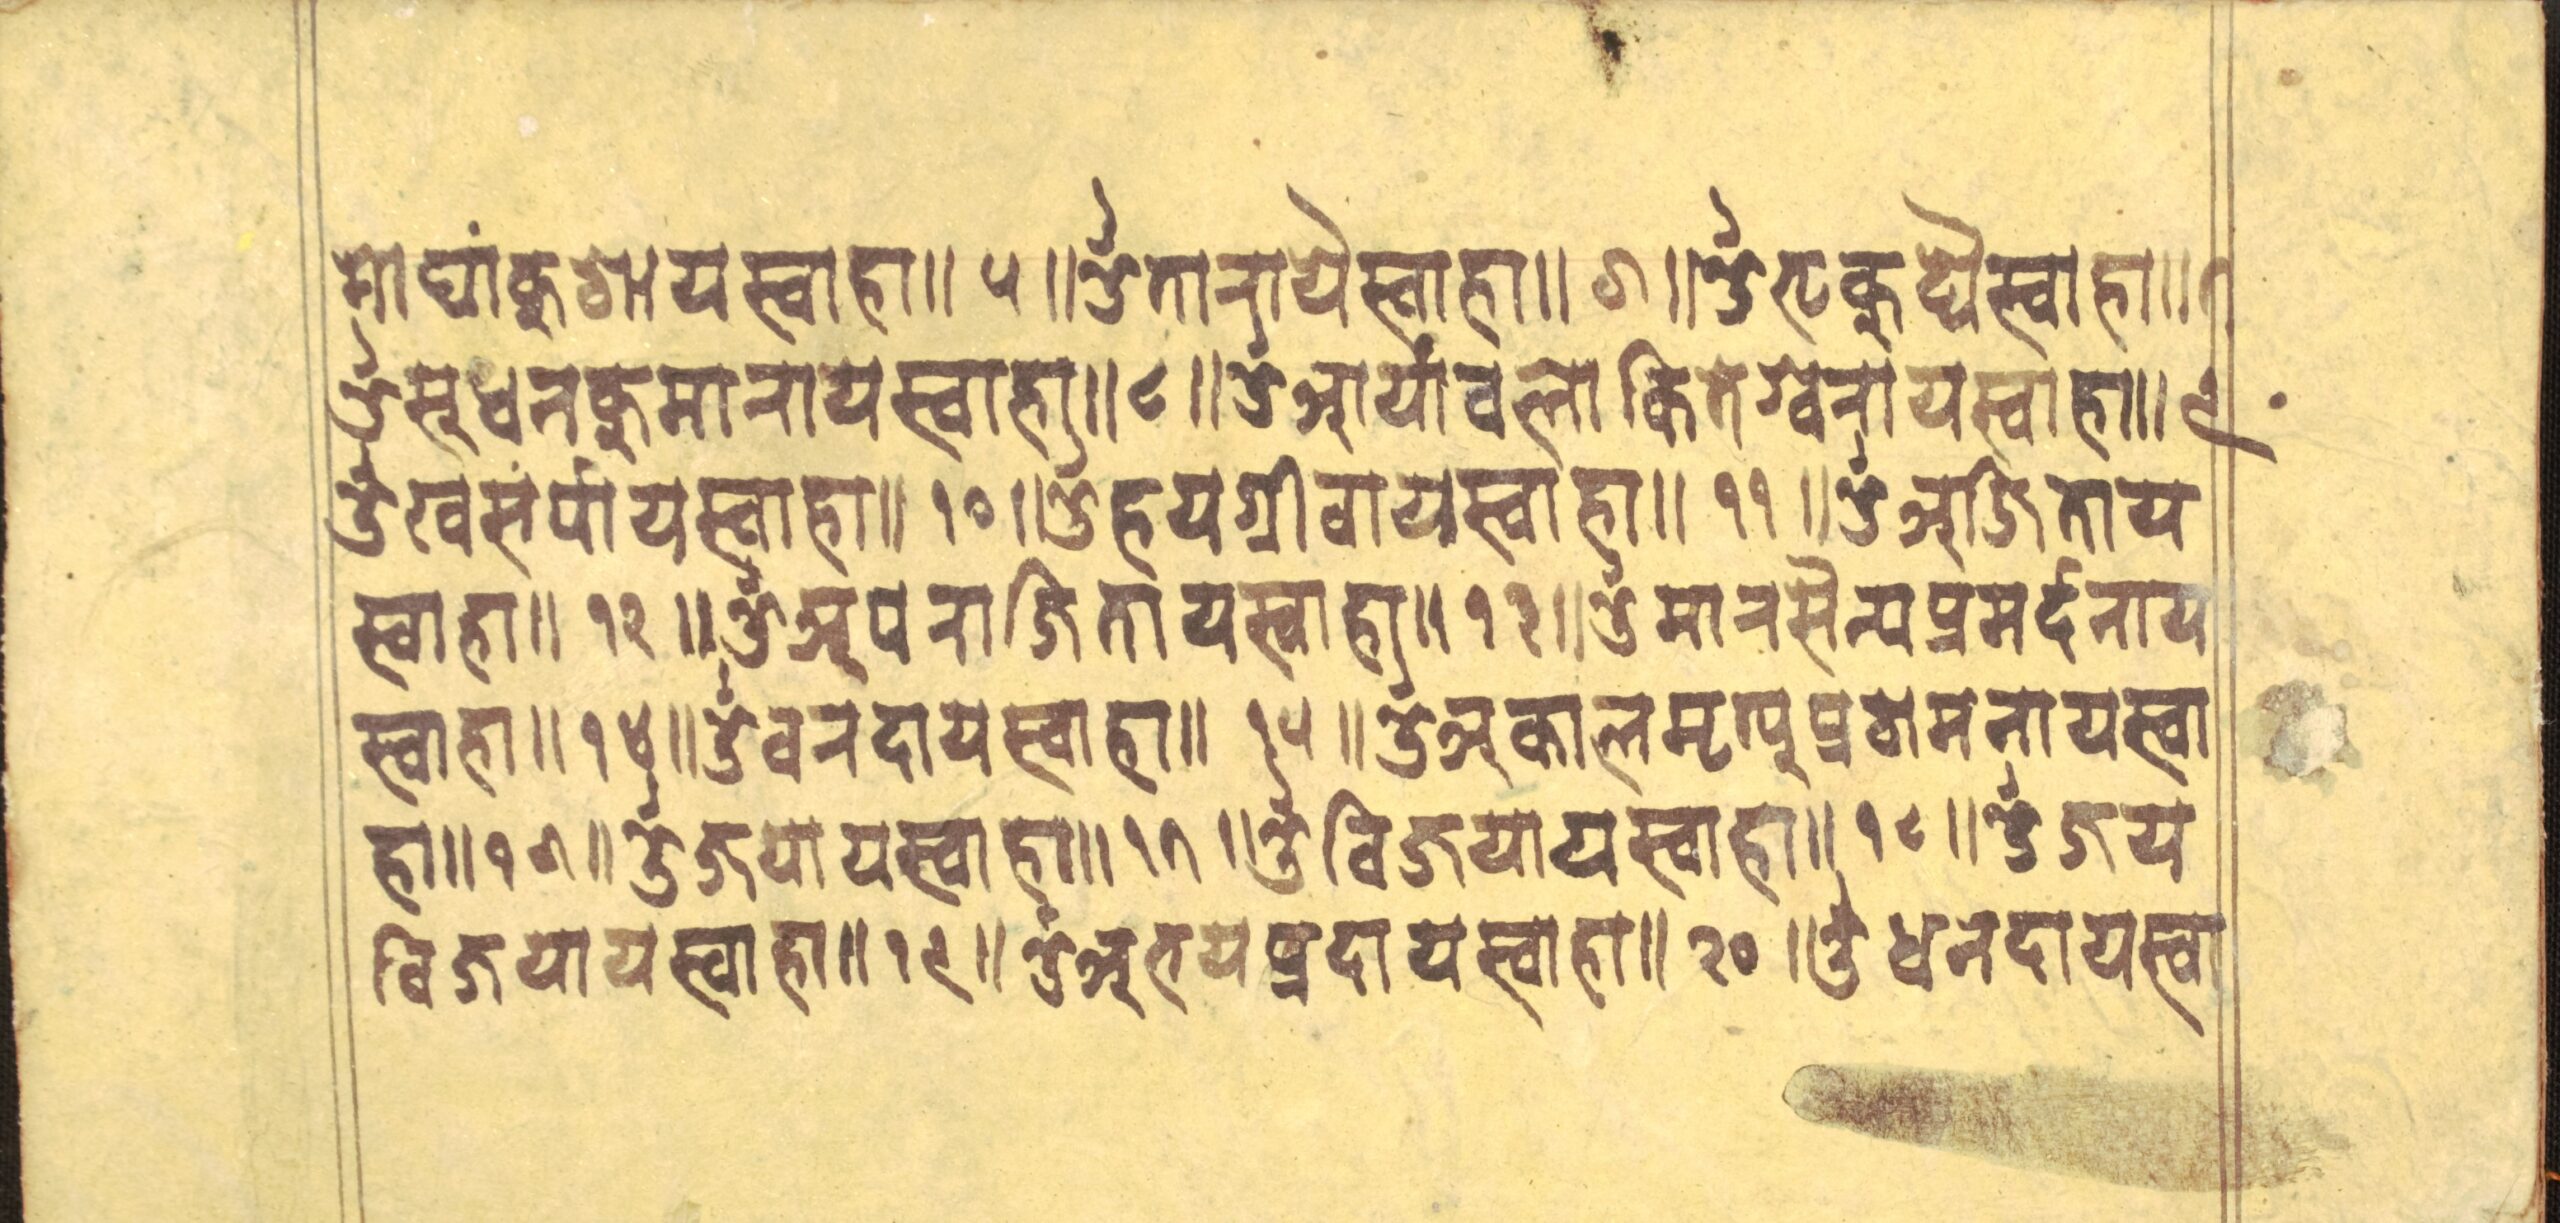 मोघांकुशायस्वाहा॥ ५ ॥ॐतारायैस्वाहा॥ ६ ॥ॐभृकुट्यैस्वाहा॥ ७
ॐसूधनकुमारायस्वाहा॥ ८ ॥ॐआर्यावलोकितेश्वरायस्वाहा॥ ९
ॐखसर्पायस्वाहा॥ १० ॥ॐहयग्रीवायस्वाहा॥ ११ ॥ॐअजिताय
स्वाहा॥ १२ ॥ॐअपराजितायस्वाहा॥ १३ ॥ॐमारसैन्यप्रमर्दनाय
स्वाहा॥ १४ ॥ॐवरदायस्वाहा॥ १५ ॥ॐअकालमृत्युप्रशमनायस्वा
हा॥ १६ ॥ॐजयायस्वाहा॥ १७ ॥ॐविजयायस्वाहा॥ १८ ॥ॐजय
विजयायस्वाहा॥ १९ ॥ॐअभयप्रदायस्वाहा॥ २० ॥ॐधनदायस्वा